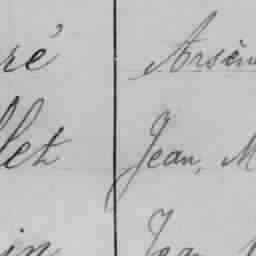 ré Arsèn
let Jean, M
in Jean